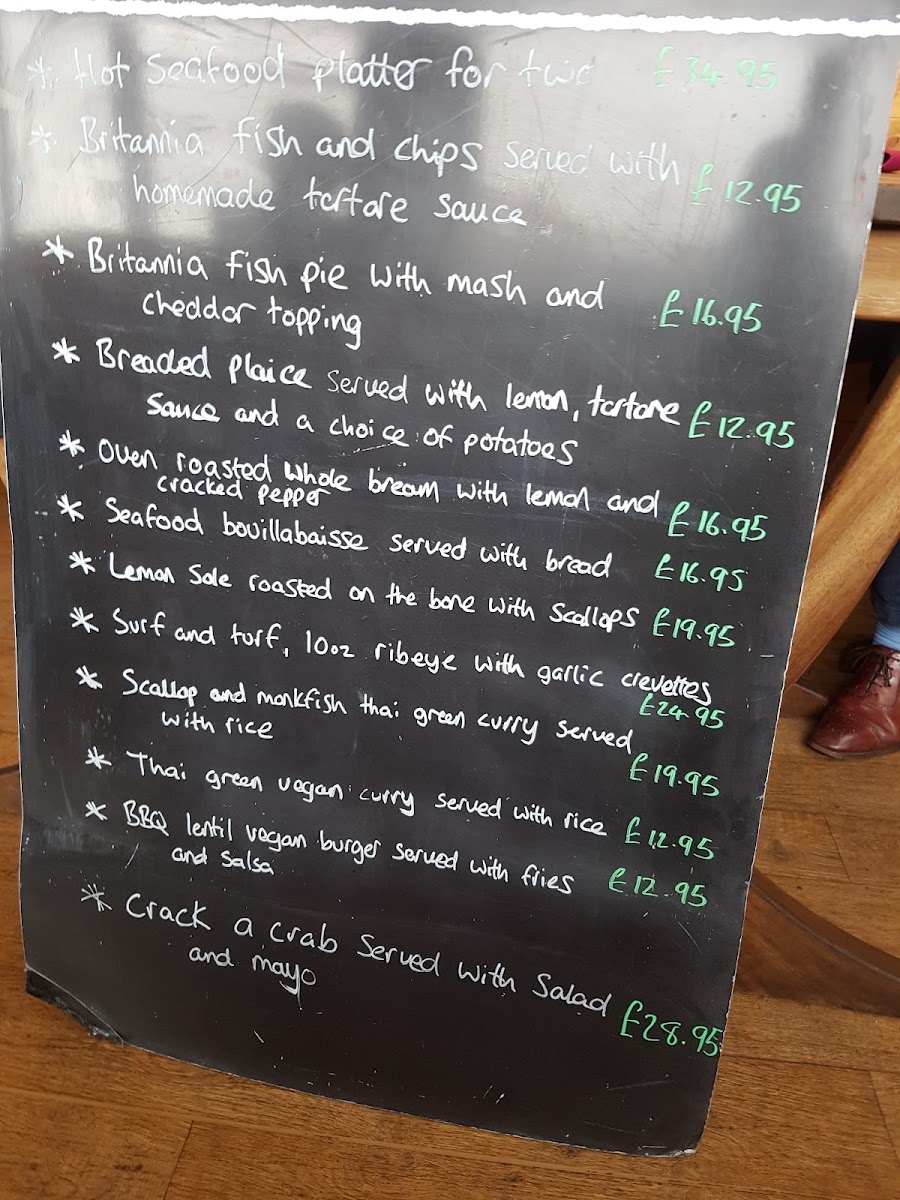 * Hot Seafood platter for two £34.95
* Britannia fish and chips served with £12.95
homemade tartare sauce
* Britannia fish pie with mash and £16.95
cheddar topping
* Breaded plaice served with lemon, tartare £12.95
sauce and a choice of potatoes
* Oven roasted whole bream with lemon and £16.95
cracked pepper
* Seafood bouillabaisse served with bread £16.95
* Lemon Sole roasted on the bone with scallops £19.95
* Surf and turf, 10oz ribeye with garlic crevettes
£24.95
* Scallop and monkfish thai green curry served
with rice £19.95
* Thai green vegan curry served with rice £12.95
* BBQ lentil vegan burger served with fries £12.95
and salsa
* Crack a crab served with salad £28.95
and mayo